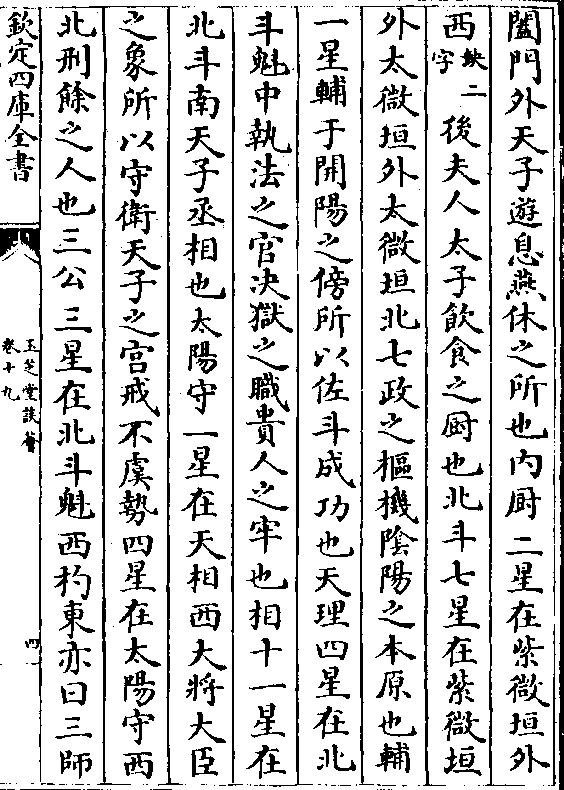 闔門外天子遊息燕休之所也内厨二星在紫微垣外
西缺二字後夫人太子飲食之厨也北斗七星在紫微垣
外太微垣外太微垣北七政之樞機隂陽之本原也輔
一星輔于開陽之傍所以佐斗成功也天理四星在北
斗魁中執法之官决獄之職貴人之牢也相十一星在
北斗南天子丞相也太陽守一星在天相西大將大臣
之象所以守衛天子之宫戒不虞勢四星在太陽守西
北刑餘之人也三公三星在北斗魁西杓東亦曰三師
欽定四庫全書
玉芝堂談薈
卷十九
四